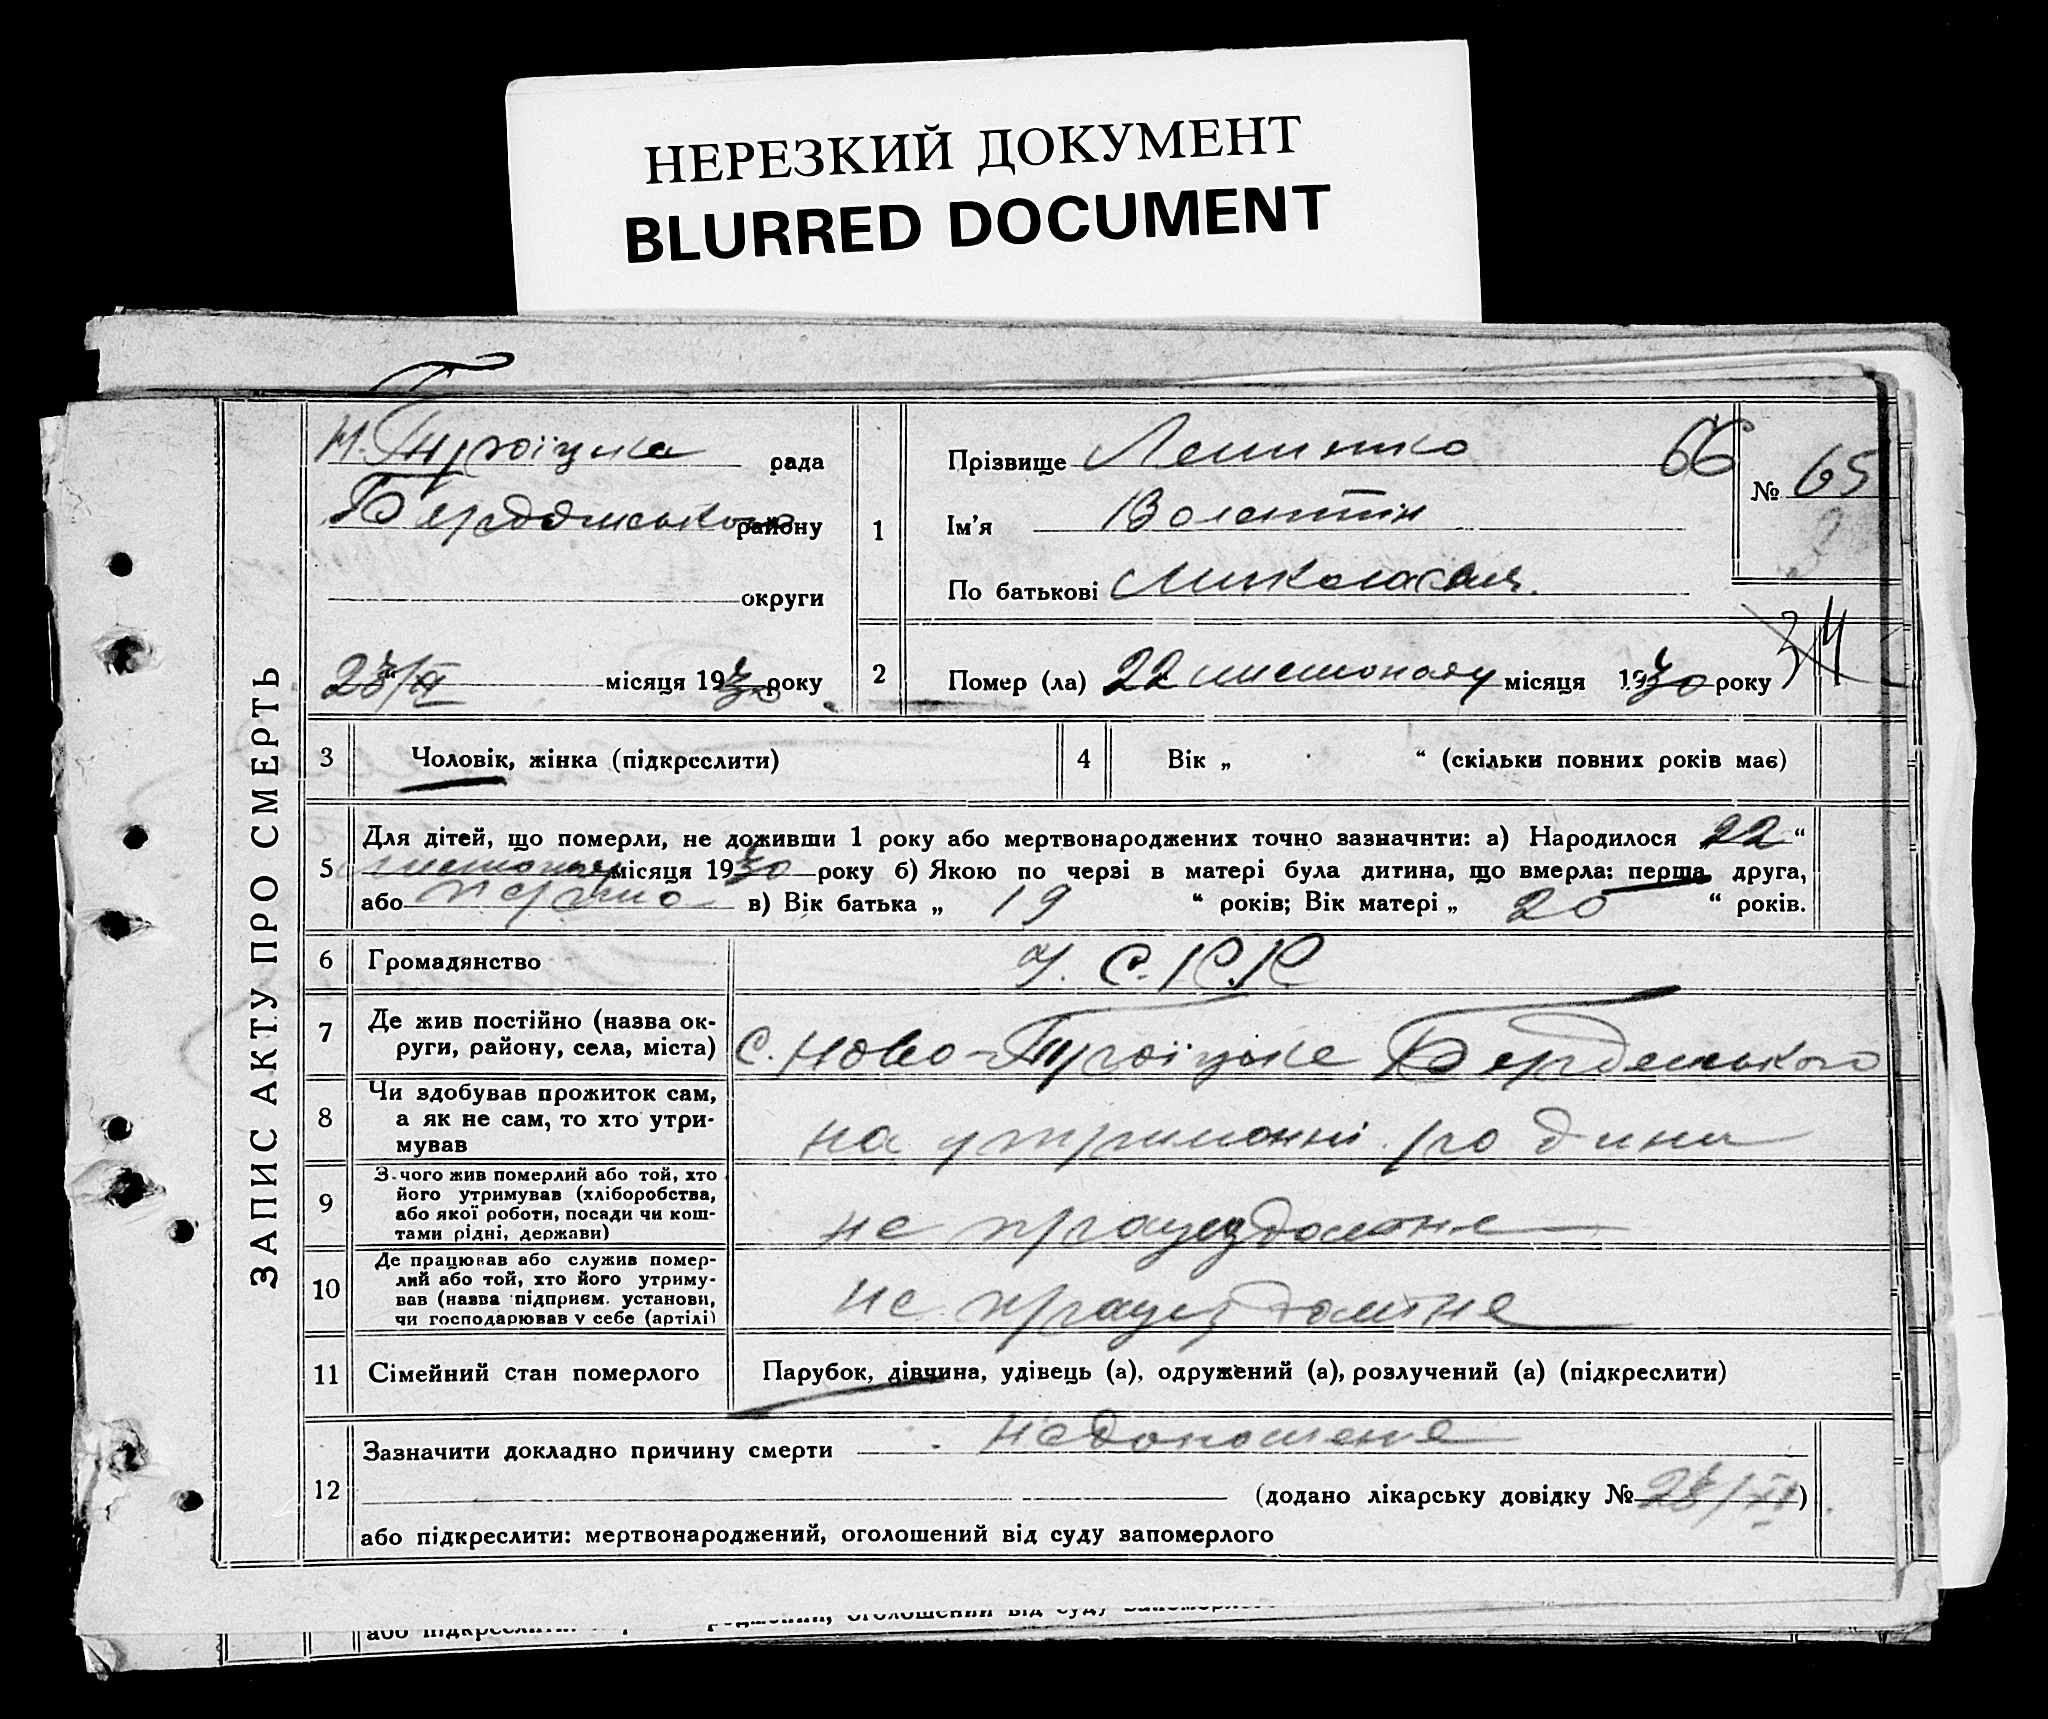 НЕРЕЗКИЙ ДОКУМЕНТ
BLURRED DOCUMENT
ЗАПИС АКТУ ПРО СМЕРТЬ
Н. Троїцка рада
Бердянського району
округи
місяця 1930 року
1
Прізвище 66
Ім'я Валентін
По батькові
№ 65
34
2
Помер (ла) 22 листопаду місяця 1930 року
3 Чоловік, жінка (підкреслити)
4 Вік „ “ (скільки повних років має)
5
Для дітей, що померли, не доживши 1 року або мертвонароджених точно зазначити: а) Народилося 22 “
листопаду місяця 1930 року б) Якою по черзі в матері була дитина, що вмерла: перша, друга,
або перша в) Вік батька „ 19 “ років; Вік матері „ 20 “ років.
6 Громадянство У. С. Р. Р.
7 Де жив постійно (назва ок-
руги, району, села, міста) с. Ново-Троїцьке Бердянського
8 Чи здобував прожиток сам,
а як не сам, то хто утри-
мував на утриманні родини
9 З чого жив померлий або той, хто
його утримував (хліборобства,
або якої роботи, посади чи кош-
тами рідні, держави) не працездатне
10 Де працював або служив помер-
лий або той, хто його утриму-
вав (назва підприєм. установи,
чи господарював у себе (артілі) не працездатне
11 Сімейний стан померлого Парубок, дівчина, удівець (а), одружений (а), розлучений (а) (підкреслити)
12
Зазначити докладно причину смерти недоношене
(додано лікарську довідку № )
або підкреслити: мертвонароджений, оголошений від суду запомерлого